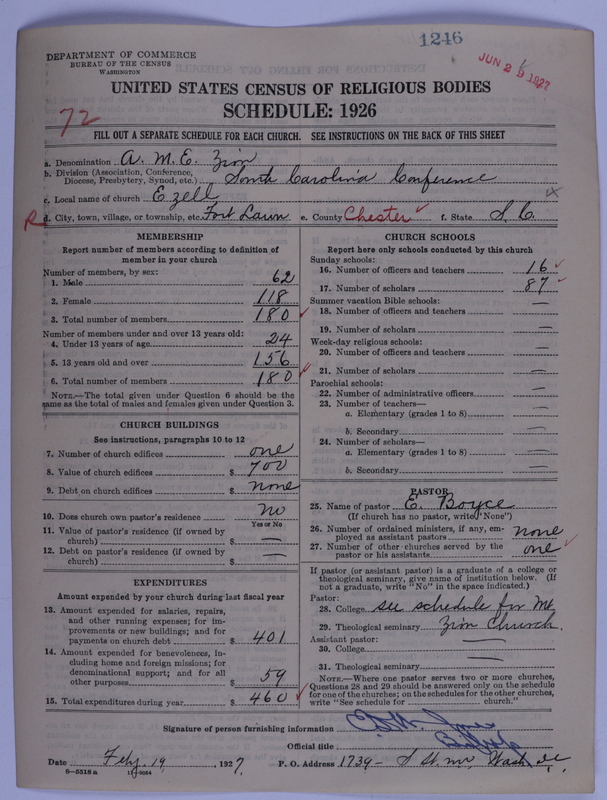 1246
JUN 29 1927
DEPARTMENT OF COMMERCE
BUREAU OF THE CENSUS
WASHINGTON
UNITED STATES CENSUS OF RELIGIOUS BODIES
SCHEDULE: 1926
72
FILL OUT A SEPARATE SCHEDULE FOR EACH CHURCH. SEE INSTRUCTIONS ON THE BACK OF THIS SHEET
a. Denomination A. M. E. Zion
b. Division (Association, Conference, Diocese, Presbytery, Synod, etc.) South Carolina Conference
c. Local name of church Ezell
R d. City, town, village, or township, etc. Fort Lawn e. County Chester f. State S. C.
MEMBERSHIP
Report number of members according to definition of
member in your church
Number of members, by sex:
1. Male 62
2. Female 118
3. Total number of members 180
Number of members under and over 13 years old:
4. Under 13 years of age 24
5. 13 years old and over 156
6. Total number of members 180
NOTE.—The total given under Question 6 should be the
same as the total of males and females given under Question 3.
CHURCH BUILDINGS
See instructions, paragraphs 10 to 12
7. Number of church edifices one
8. Value of church edifices $ 700
9. Debt on church edifices $ none
10. Does church own pastor's residence no
Yes or No
11. Value of pastor's residence (if owned by
church) $ —
12. Debt on pastor's residence (if owned by
church) $ —
EXPENDITURES
Amount expended by your church during last fiscal year
13. Amount expended for salaries, repairs,
and other running expenses; for im-
provements or new buildings; and for
payments on church debt $ 401
14. Amount expended for benevolences, in-
cluding home and foreign missions; for
denominational support; and for all
other purposes $ 59
15. Total expenditures during year $ 460
CHURCH SCHOOLS
Report here only schools conducted by this church
Sunday schools:
16. Number of officers and teachers 16
17. Number of scholars 87
Summer vacation Bible schools:
18. Number of officers and teachers —
19. Number of scholars —
Week-day religious schools:
20. Number of officers and teachers —
21. Number of scholars —
Parochial schools:
22. Number of administrative officers —
23. Number of teachers—
a. Elementary (grades 1 to 8) —
b. Secondary —
24. Number of scholars—
a. Elementary (grades 1 to 8) —
b. Secondary —
PASTOR
25. Name of pastor E. Boyce
(If church has no pastor, write "None")
26. Number of ordained ministers, if any, em-
ployed as assistant pastors none
27. Number of other churches served by the
pastor or his assistants one
If pastor (or assistant pastor) is a graduate of a college or
theological seminary, give name of institution below. (If
not a graduate, write "No" in the space indicated.)
Pastor:
28. College see schedule for Mt
29. Theological seminary Zion Church.
Assistant pastor:
30. College —
31. Theological seminary —
NOTE.—Where one pastor serves two or more churches,
Questions 28 and 29 should be answered only on the schedule
for one of the churches; on the schedules for the other churches,
write "See schedule for church."
Signature of person furnishing information
Official title Bishop
Date Feby. 19, 1927. P. O. Address 1739- S St. nw Wash DC
8-5518a